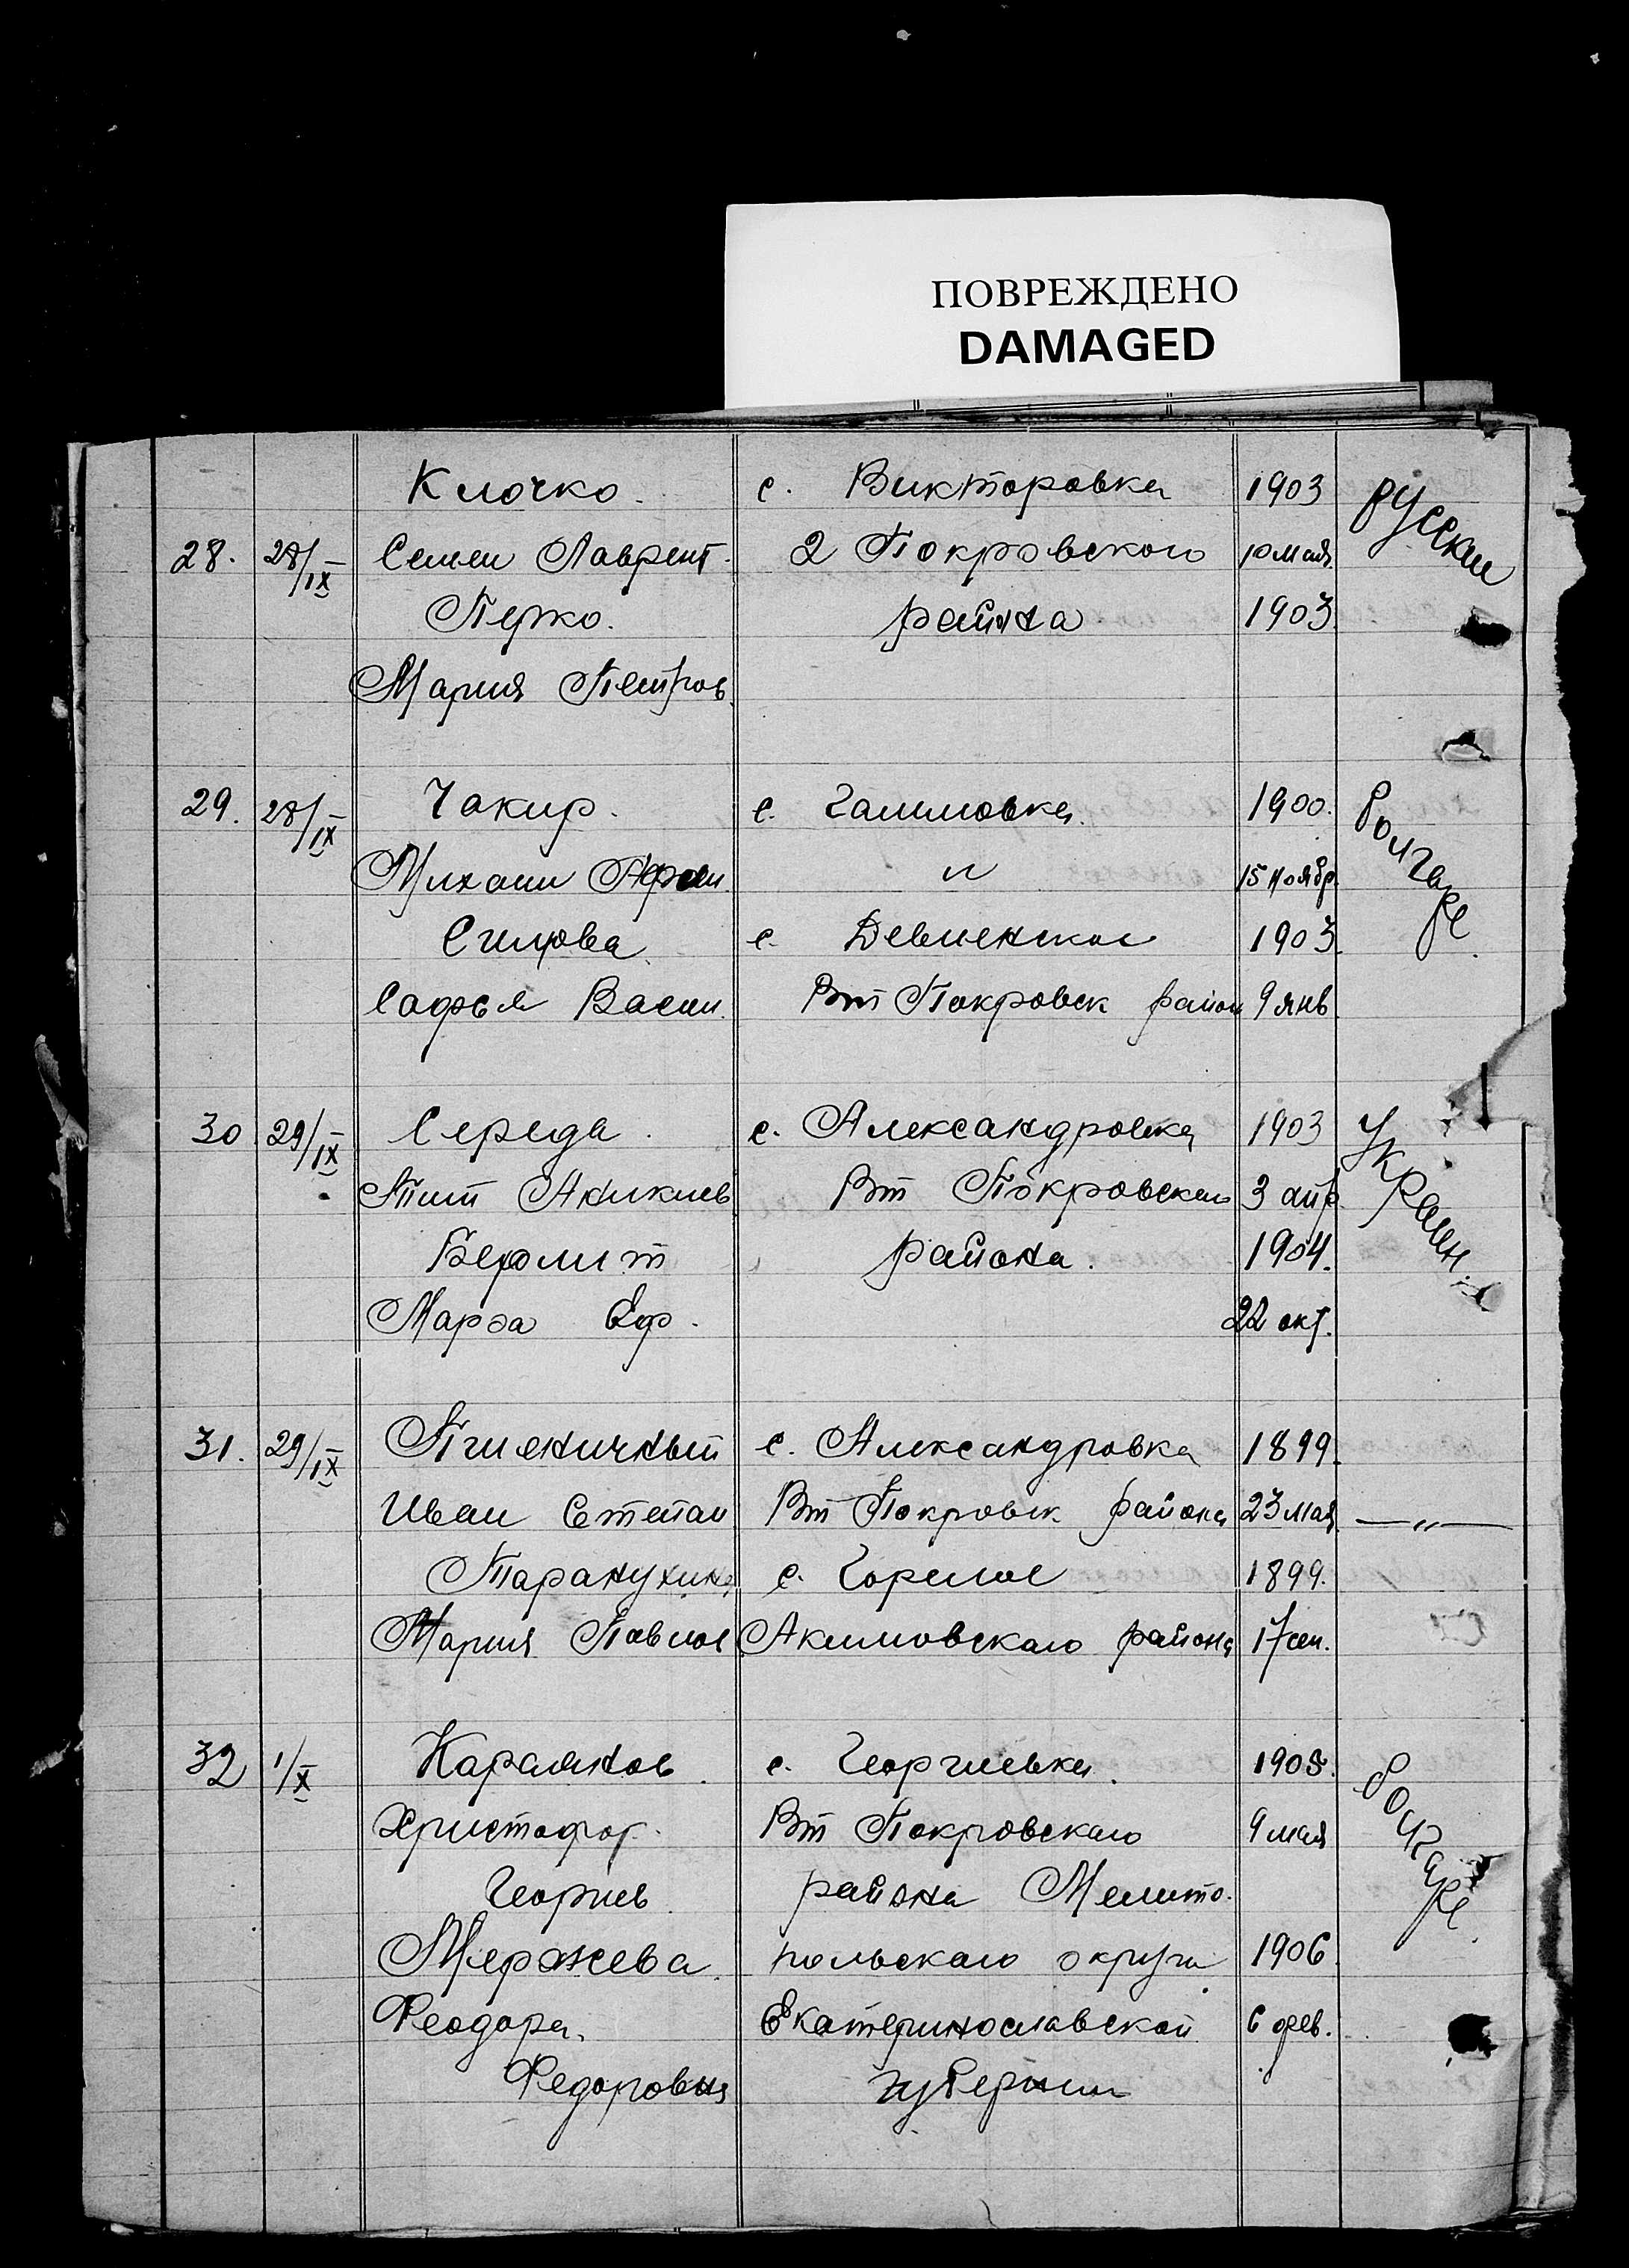 ПОВРЕЖДЕНО
DAMAGED
Клочко. с. Викторовка 1903 русские
28. 28/IX Семен Лаврент. 2 Покровского 10 мая.
Перко. района 1903.
Мария Петров.
29. 28/IX Чакир. с. Галиловка. 1900. болгаре
Михаил Афан " 15 ноябр.
с. 1903.
Софья Васил. Вт Покровск район 9 янв.
30 29/IX Середа. с. Александровка 1903 Украин.
Тит Аникиев Вт Покровского 3 апр
района. 1904.
Марфа Еф. 22 окт.
31. 29/IX Пшеничный с. Александровка 1899.
Иван Степан Вт Покровск района 23 мая — " —
Таранухина с. Горелое 1899.
Мария Павлов Акимовского района 17 сен.
32 1/X с. Георгиевка. 1905. болгаре.
Христофор. Вт Покровского 9 мая
Георгиев. района Мелито-
Мержева. польского округа 1906.
Феодора. Екатеринославской 6 фев.
Федоровна губернии